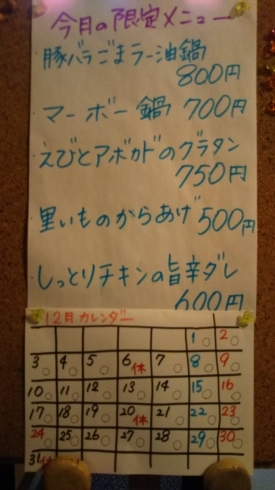 今月の限定メニュー
・豚バラごまラー油鍋
800円
・マーボー鍋 700円
・えびとアボカドのグラタン
750円
・里いものからあげ 500円
・しっとりチキンの旨辛ダレ
600円
12月カレンダー
1 2
3 4 5 6休 7 8 9
10 11 12 13 14 15 16
17 18 19 20休 21 22 23
24 25 26 27 28 29 30
31休